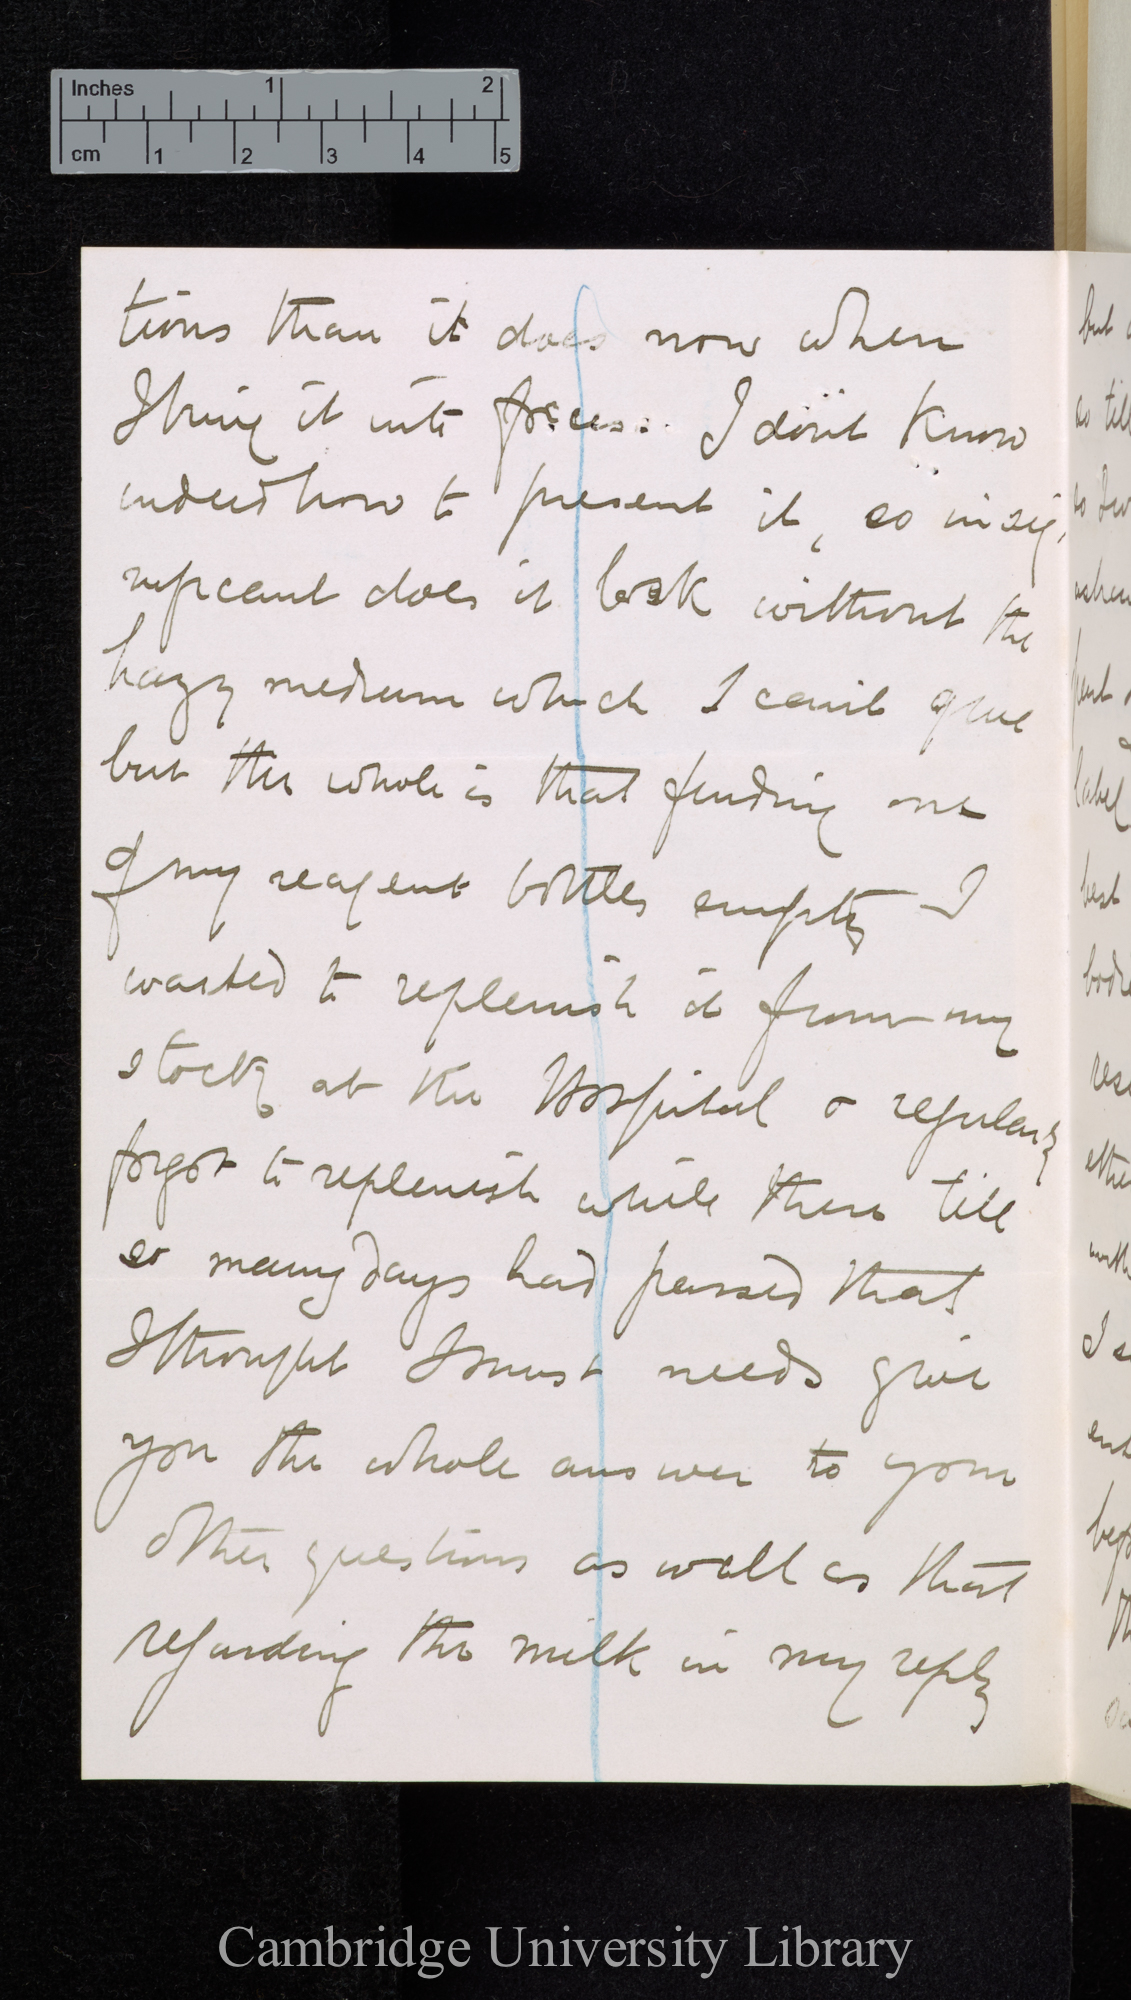 Inches 1 2
cm 1 2 3 4 5
tions than it does now when
I bring it into focus. I don't know
indeed how to present it, so insig,
nificant does it look without the
hazy medium which I can't give
but the whole is that finding one
of my reagent bottles empty I
waited to replenish it from my
stock at the Hospital & regularly
forgot to replenish while there till
so many days had passed that
I thought I must needs give
you the whole answer to your
other questions as well as that
regarding the milk in my reply
but
label
best
Cambridge University Library